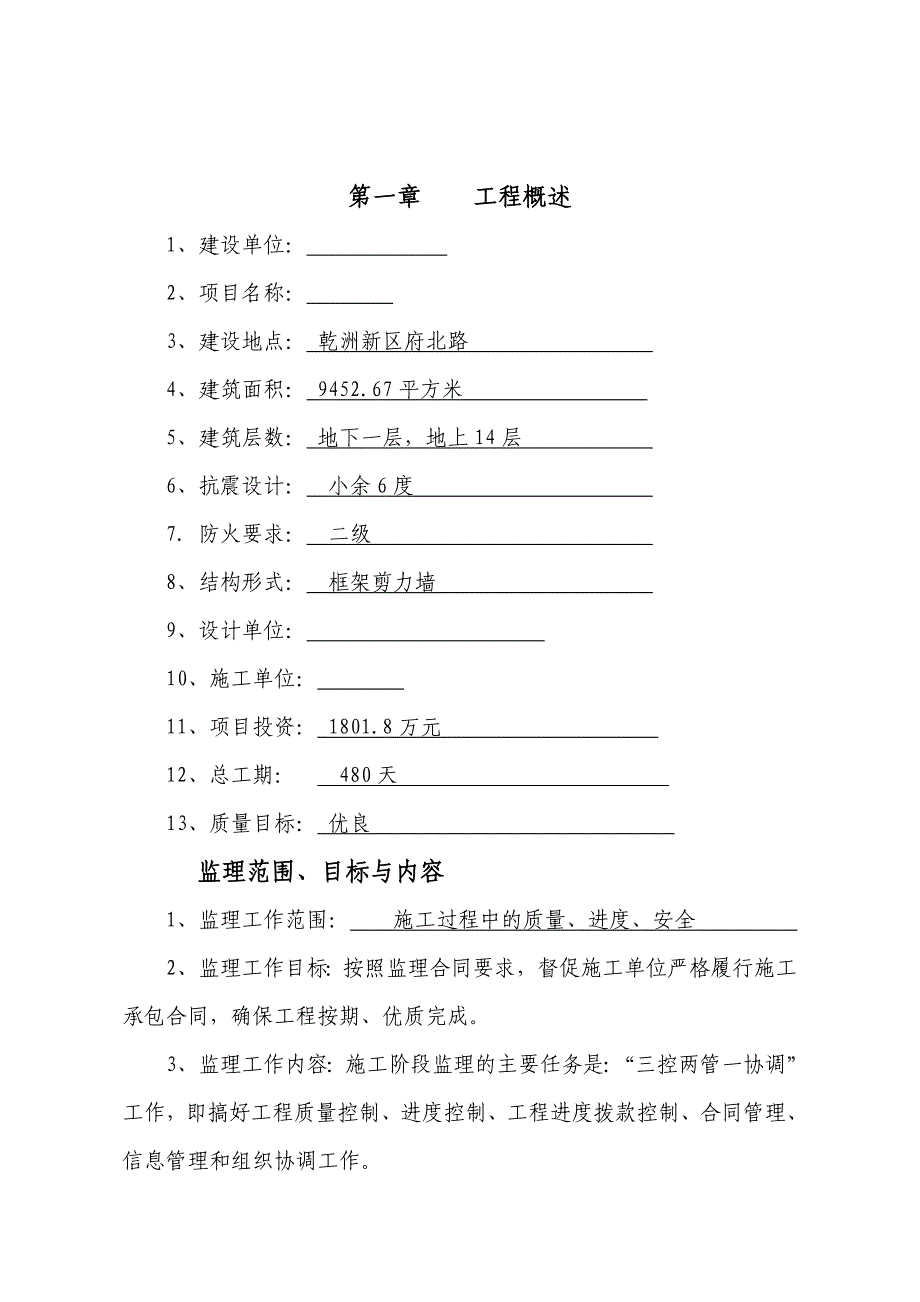 第一章 工程概述
1、建设单位：
2、项目名称：
3、建设地点： 乾洲新区府北路
4、建筑面积： 9452.67平方米
5、建筑层数： 地下一层，地上14层
6、抗震设计： 小余6度
7. 防火要求： 二级
8、结构形式： 框架剪力墙
9、设计单位：
10、施工单位：
11、项目投资： 1801.8万元
12、总工期： 480天
13、质量目标： 优良
监理范围、目标与内容
1、监理工作范围： 施工过程中的质量、进度、安全
2、监理工作目标：按照监理合同要求，督促施工单位严格履行施工
承包合同，确保工程按期、优质完成。
3、监理工作内容：施工阶段监理的主要任务是：“三控两管一协调”
工作，即搞好工程质量控制、进度控制、工程进度拨款控制、合同管理、
信息管理和组织协调工作。